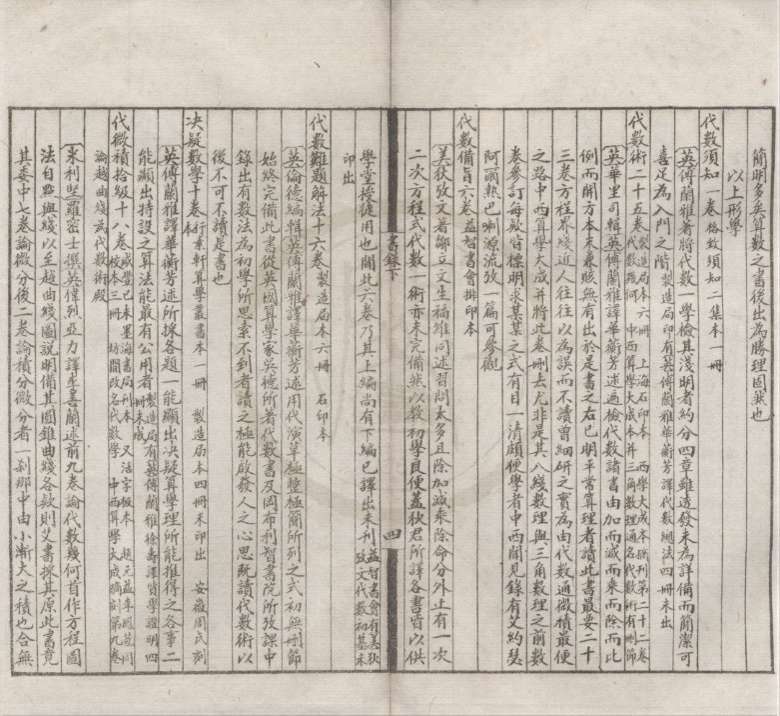 簡明多矣算數之書後出為勝理固然也
以上形學
代數須知一卷格致須知二集本一冊
英傅蘭雅著將代數一學檢其淺明者約分四章雖透發未為詳備而簡潔可
喜足為入門之階製造局印有英傅蘭雅華蘅芳譯代數總法四冊未出
代數術二十五卷製造局本六冊 上海石印本 西學大成本 刊第二十二卷代數幾何 中西算學大成本并三角數理通名代數術有刪節
英華里司輯英傅蘭雅譯華蘅芳述遍檢代數諸書由加而減而乘而除而比
例而開方本末兼賅無有出於是書之右已明平常算理者讀此書最要二十
三卷方程界綫近人往往以為誤而不讀曾細研之實為由代數通微積最便
之路中西算學大成并將此卷刪去尤非是其八綫數理與三角數理之前數
卷參訂每款皆標明求某某之式有目一清頗便學者中西聞見錄有艾約瑟
阿爾熱巴喇源流攷一篇可參觀
代數備旨六卷益智書會排印本
美狄攷文著鄒立文生福維同述習問太多且除加減乘除命分外止有一次
二次方程式代數一術亦未完備然以教初學良便蓋狄君所譯各書皆以供
書錄下
四
學堂授徒用也聞此六卷乃其上編尚有下編已譯出未刊益智書會有美狄攷文代數初基未
印出
代數難題解法十六卷製造局本六冊 石印本
英倫德編輯英傅蘭雅譯華蘅芳述用代演草極整極簡所列之式初無刪節
始終完備此書從英國算學家吳德所著代數書及岡布利智書院所攷課中
錄出有數法為初學所思索不到者讀之極能啟發人之心思旣讀代數術以
後不可不讀是書也
决疑數學十卷行素軒算學叢書本一冊 製造局本四冊未印出 安徽周氏刻本
英傅蘭雅譯華蘅芳述所採各題一能顯出决疑算學理所能推得之各事二
能顯出特設之算法能最有公用者製造局有英傅蘭雅徐壽譯質學證明四冊未成
代微積拾級十八卷咸豐已未墨海書局刊本 又活字板本 趙元益李鳳苞同校本三冊 坊間改名代數學 中西算學大成摘刻第九卷
論越曲綫為代數術殿
米利堅羅密士撰英偉烈亞力譯李善蘭述前九卷論代數幾何首作方程圖
法自點與綫以至越曲綫圖說明備其圓錐曲綫各欵則艾書採其原此書竟
其委中七卷論微分後二卷論積分微分者一刹那中由小漸大之積也合無